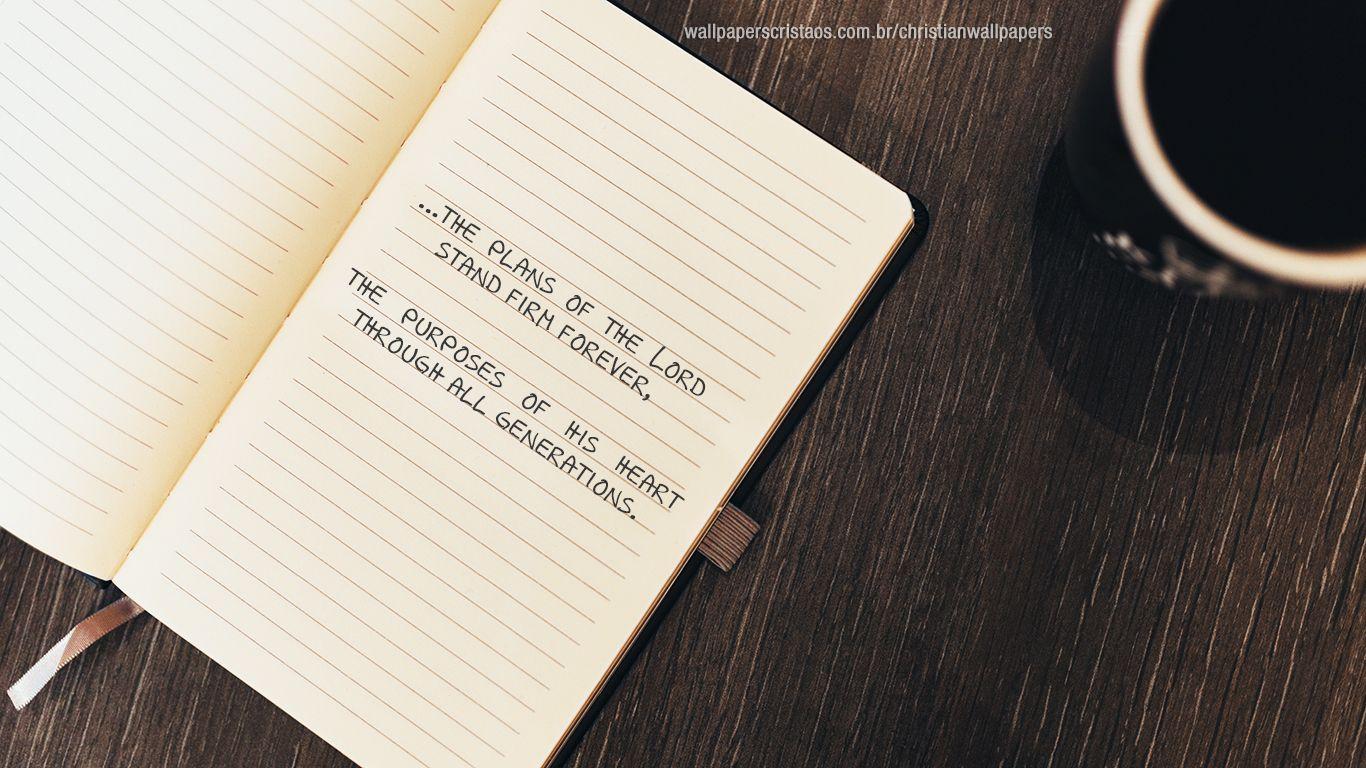 wallpaperscristaos.com.br/christianwallpapers
...THE PLANS OF THE LORD
STAND FIRM FOREVER,
THE PURPOSES OF HIS HEART
THROUGH ALL GENERATIONS.